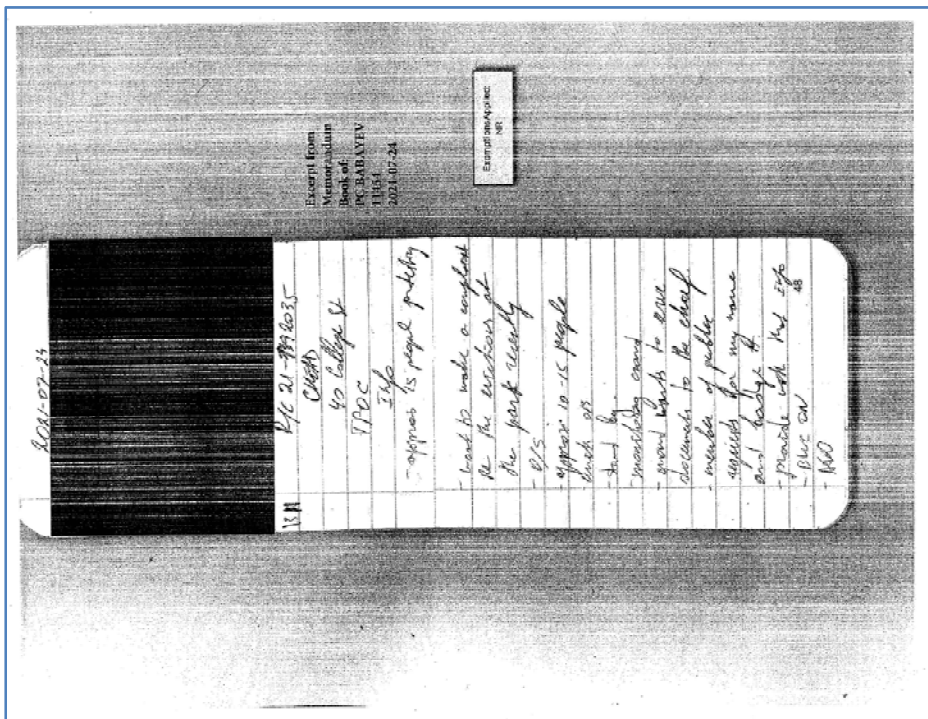 Excerpt from
Memorandum
Book of:
PC BABAYEV
2021-07-24
Exemptions Applied:
NR
2021-07-24
CHEAD
40 College St
TPOC
Info
- approx 15 people protesting
- want to make a complaint
re the evictions at
the park recently
- o/s
- approx 10-15 people
- units o/s
monitoring crowd
- crowd wants to serve
documents to the chief
- member of public
requests for my name
and badge #
- provide with his info
48